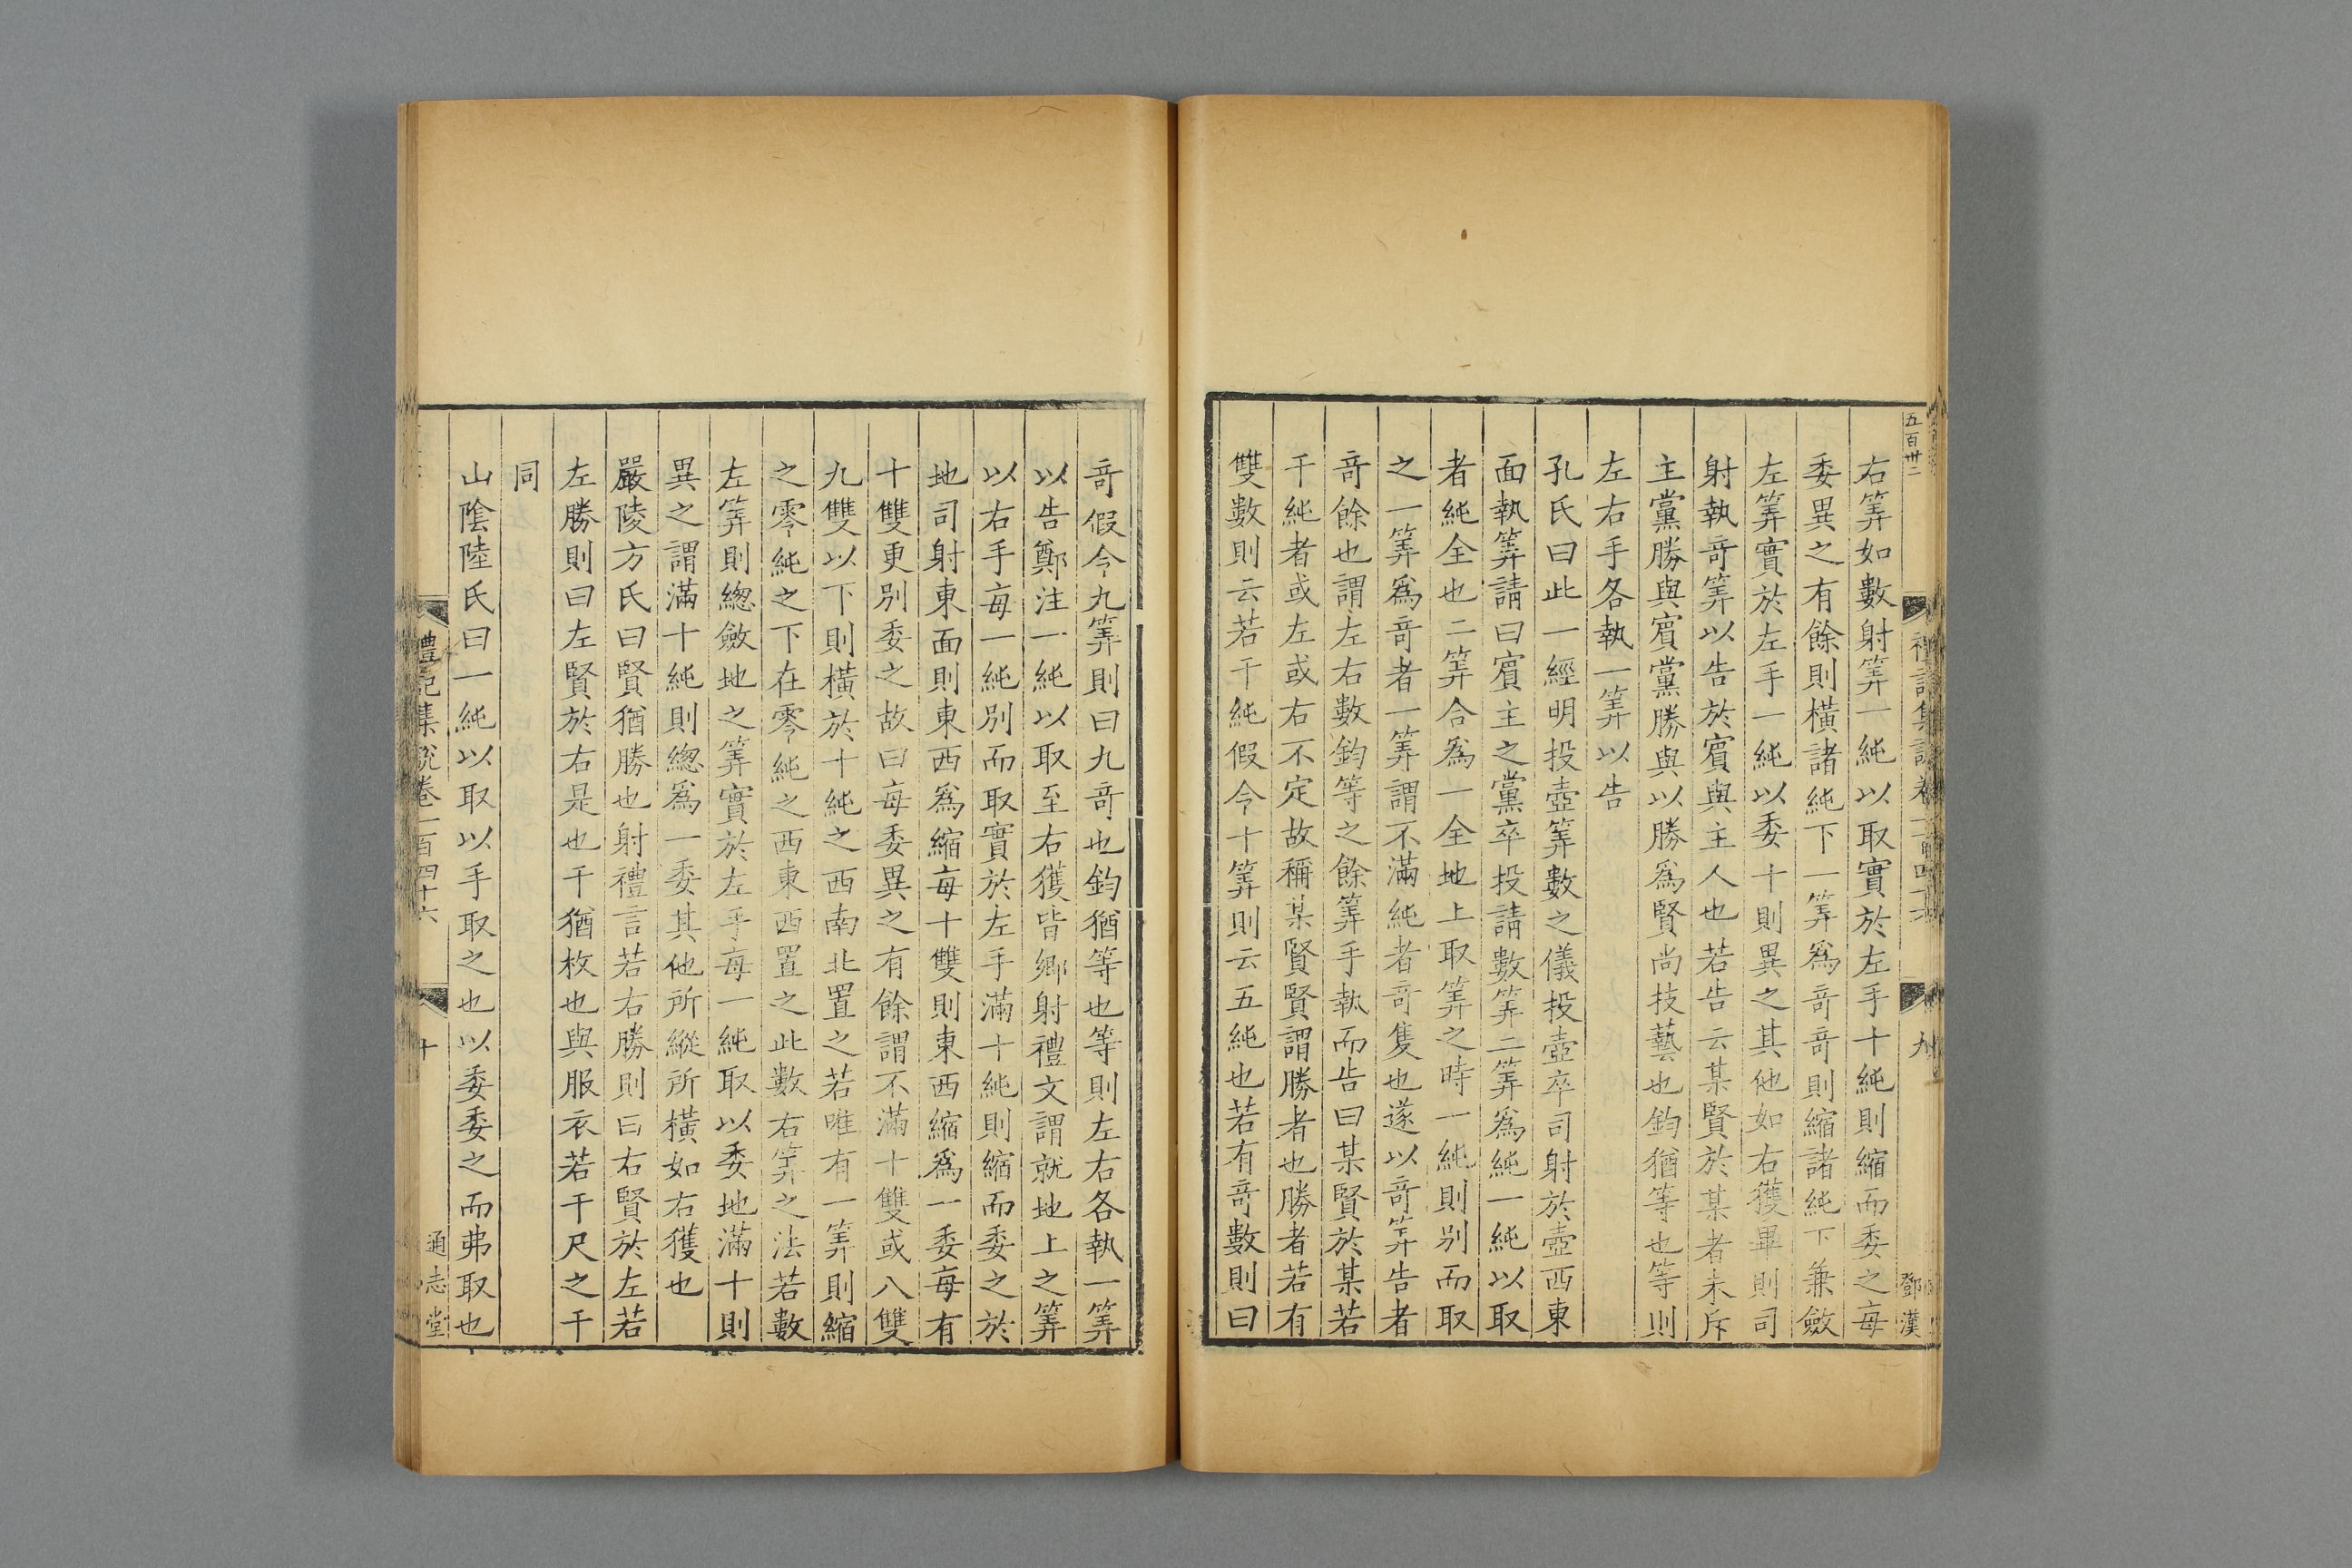 五百卅二
禮記集說卷一百四十六
九
鄧漢
右筭如數射筭一純以取實於左手十純則縮而委之每
委異之有餘則橫諸純下一筭爲竒竒則縮諸純下兼斂
左筭實於左手一純以委十則異之其他如右獲畢則司
射執竒筭以告於賔與主人也若告云某賢於某者未斥
主黨勝與賔黨勝與以勝爲賢尚技藝也鈞猶等也等則
左右手各執一筭以告
孔氏曰此一經明投壺筭數之儀投壺卒司射於壺西東
面執筭請曰賔主之黨卒投請數筭二筭爲純一純以取
者純全也二筭合爲一全地上取筭之時一純則别而取
之一筭爲竒者一筭謂不滿純者竒隻也遂以竒筭告者
竒餘也謂左右數鈞等之餘筭手執而告曰某賢於某若
干純者或左或右不定故稱某賢賢謂勝者也勝者若有
雙數則云若干純假令十筭則云五純也若有竒數則曰
竒假令九筭則曰九竒也鈞猶等也等則左右各執一筭
以告鄭注一純以取至右獲皆鄉射禮文謂就地上之筭
以右手每一純别而取實於左手滿十純則縮而委之於
地司射東面則東西爲縮每十雙則東西縮爲一委每有
十雙更别委之故曰每委異之有餘謂不滿十雙或八雙
九雙以下則橫於十純之西南北置之若唯有一筭則縮
之零純之下在零純之西東西置之此數右筭之法若數
左筭則緫斂地之筭實於左手每一純取以委地滿十則
異之謂滿十純則緫爲一委其他所縱所橫如右獲也
嚴陵方氏曰賢猶勝也射禮言若右勝則曰右賢於左若
左勝則曰左賢於右是也干猶枚也與服衣若干尺之干
同
山陰陸氏曰一純以取以手取之也以委委之而弗取也
禮記集說卷一百四十六
十
通志堂